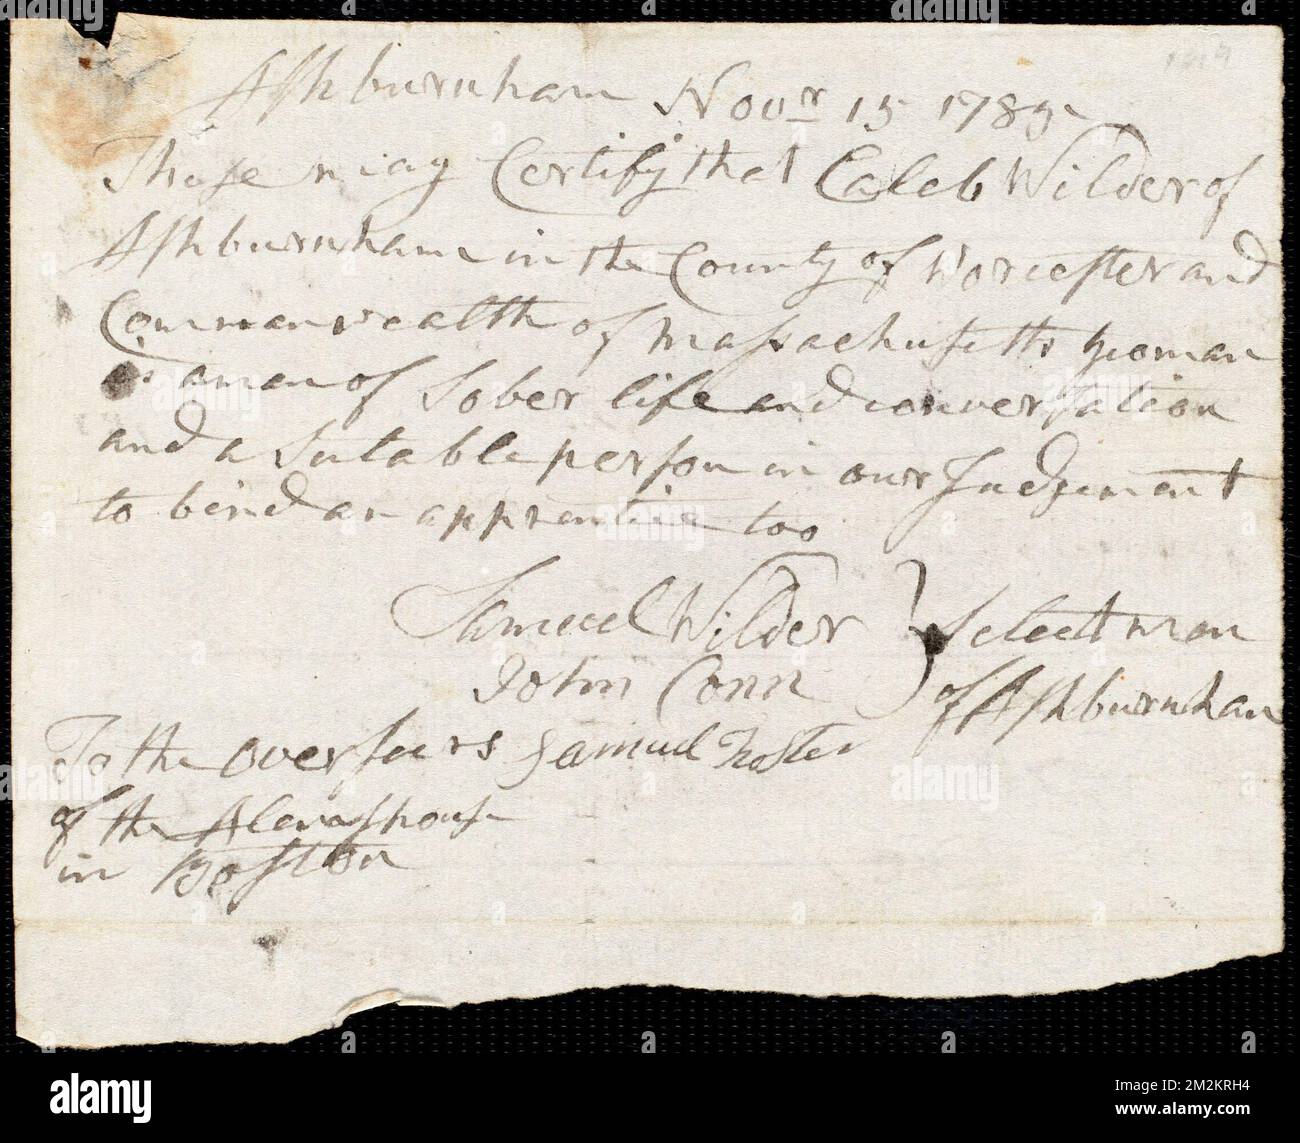 Ashburnham Nov.r 15 1785
These may Certify that Caleb Wilder of
Ashburnham in the County of Worcester and
Commonwealth of Massachusetts yeoman
is a man of Sober life and conversation
and a Sutable person in our Judgement
to bind an apprentice too
Samuel Wilder
John Conn
Samuel Foster
Selectmen
of Ashburnham
To the Overseers
of the Almashouse
in Boston
alamy
Image ID: 2M2KRH4
www.alamy.com